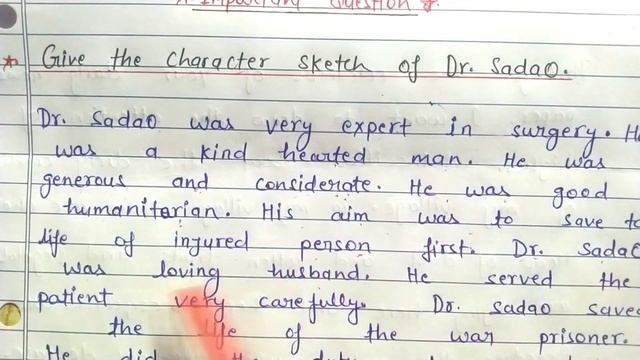 * Important Question *
* Give the character sketch of Dr. Sadao.
Dr. Sadao was very expert in surgery. He
was a kind hearted man. He was
generous and considerate. He was good
humanitarian. His aim was to save to
life of injured person first. Dr. Sadao
was loving husband. He served the
patient very carefully. Dr. Sadao saved
the life of the war prisoner.
He did